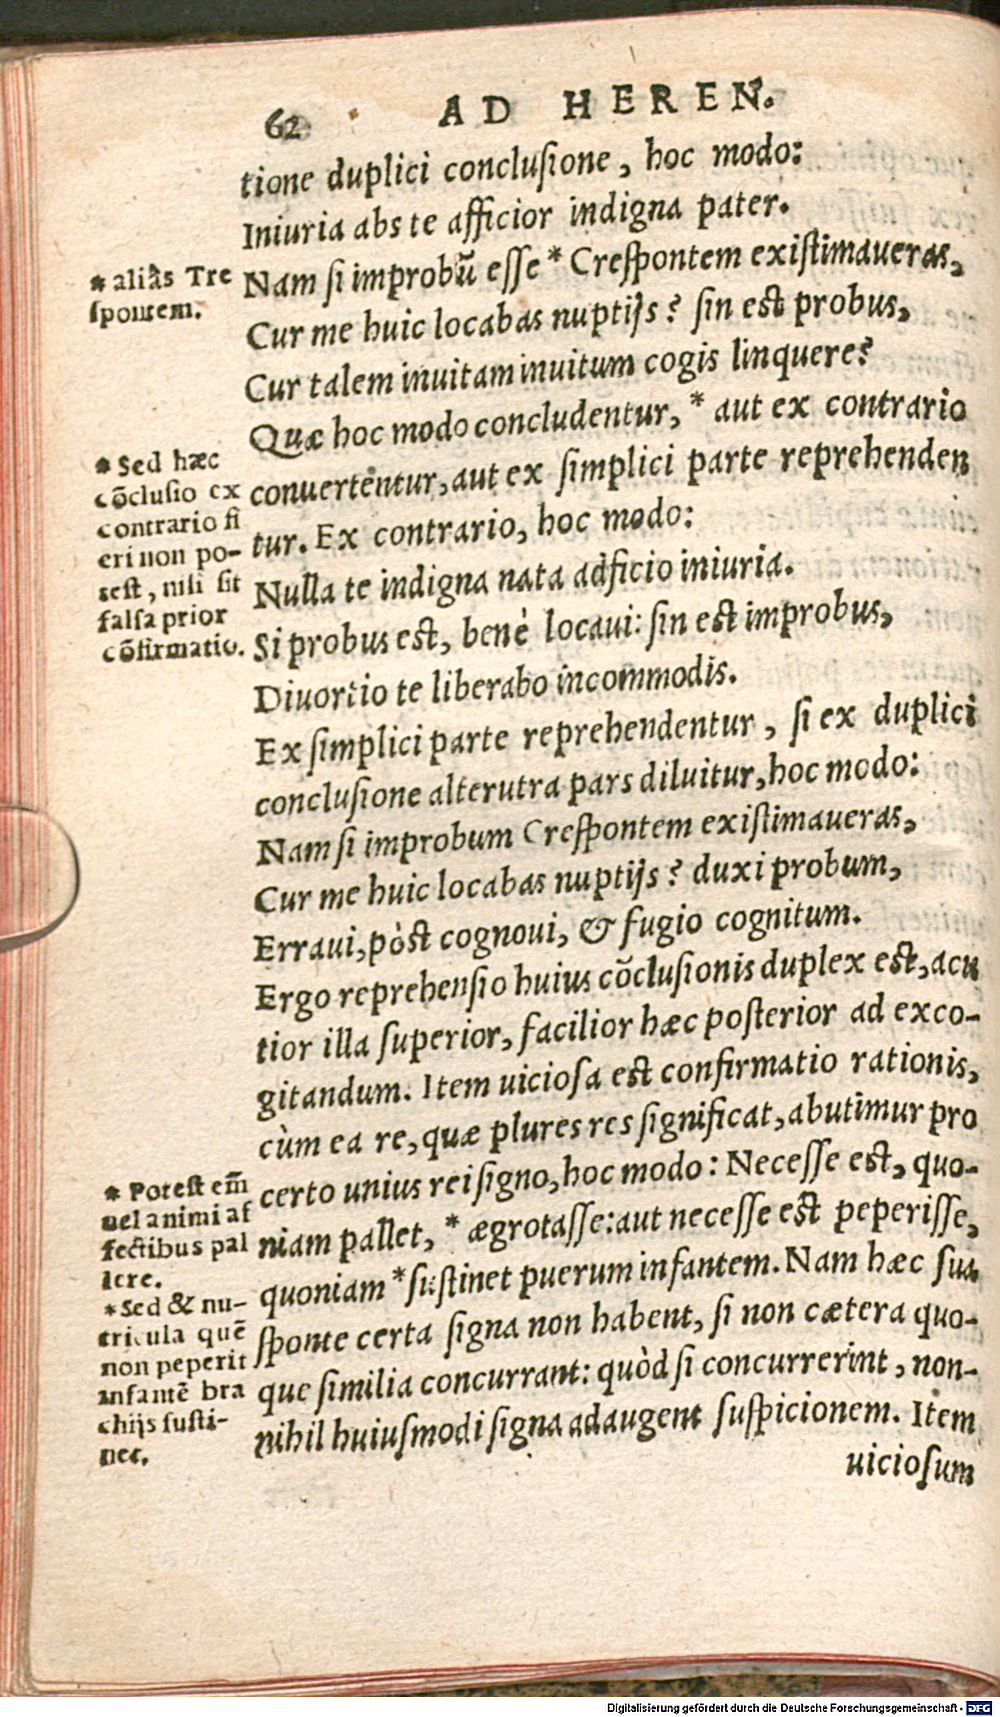 62 AD HEREN.
tione duplici conclusione, hoc modo:
Iniuria abs te afficior indigna pater.
Nam si improbũ esse * Crespontem existimaueras,
Cur me huic locabas nuptijs? sin est probus,
Cur talem inuitam inuitum cogis linquere?
Quæ hoc modo concludentur, * aut ex contrario
conuertentur, aut ex simplici parte reprehenden
tur. Ex contrario, hoc modo:
Nulla te indigna nata adficio iniuria.
Si probus est, benè locaui: sin est improbus,
Diuortio te liberabo incommodis.
Ex simplici parte reprehendentur, si ex duplici
conclusione alterutra pars diluitur, hoc modo:
Nam si improbum Crespontem existimaueras,
Cur me huic locabas nuptijs? duxi probum,
Erraui, pòst cognoui, & fugio cognitum.
Ergo reprehensio huius cõclusionis duplex est, acu
tior illa superior, facilior hæc posterior ad exco-
gitandum. Item uiciosa est confirmatio rationis,
cùm ea re, quæ plures res significat, abutimur pro
certo unius rei signo, hoc modo: Necesse est, quo-
niam pallet, * ægrotasse: aut necesse est peperisse,
quoniam * sustinet puerum infantem. Nam hæc sua
sponte certa signa non habent, si non cætera quo-
que similia concurrant: quòd si concurrerint, non-
nihil huiusmodi signa adaugent suspicionem. Item
uiciosum
* aliâs Tre
spontem.
* Sed hæc
cõclusio ex
contrario fi
eri non po-
test, nisi sit
falsa prior
cõfirmatio.
* Potest em̃
uel animi af
fectibus pal
lere.
* Sed & nu-
tricula quẽ
non peperit
infantẽ bra
chijs susti-
net.
Digitalisierung gefördert durch die Deutsche Forschungsgemeinschaft - DFG